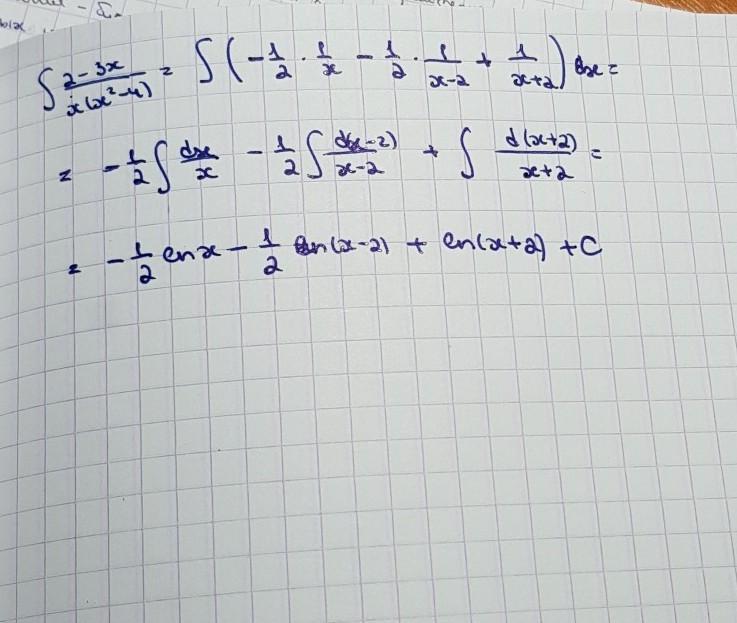 ∫ (2-3x)/(x(x²-4)) = ∫ (-1/2 · 1/x - 1/2 · 1/(x-2) + 1/(x+2)) dx =
= -1/2 ∫ dx/x - 1/2 ∫ d(x-2)/(x-2) + ∫ d(x+2)/(x+2) =
= -1/2 ln x - 1/2 ln(x-2) + ln(x+2) + C